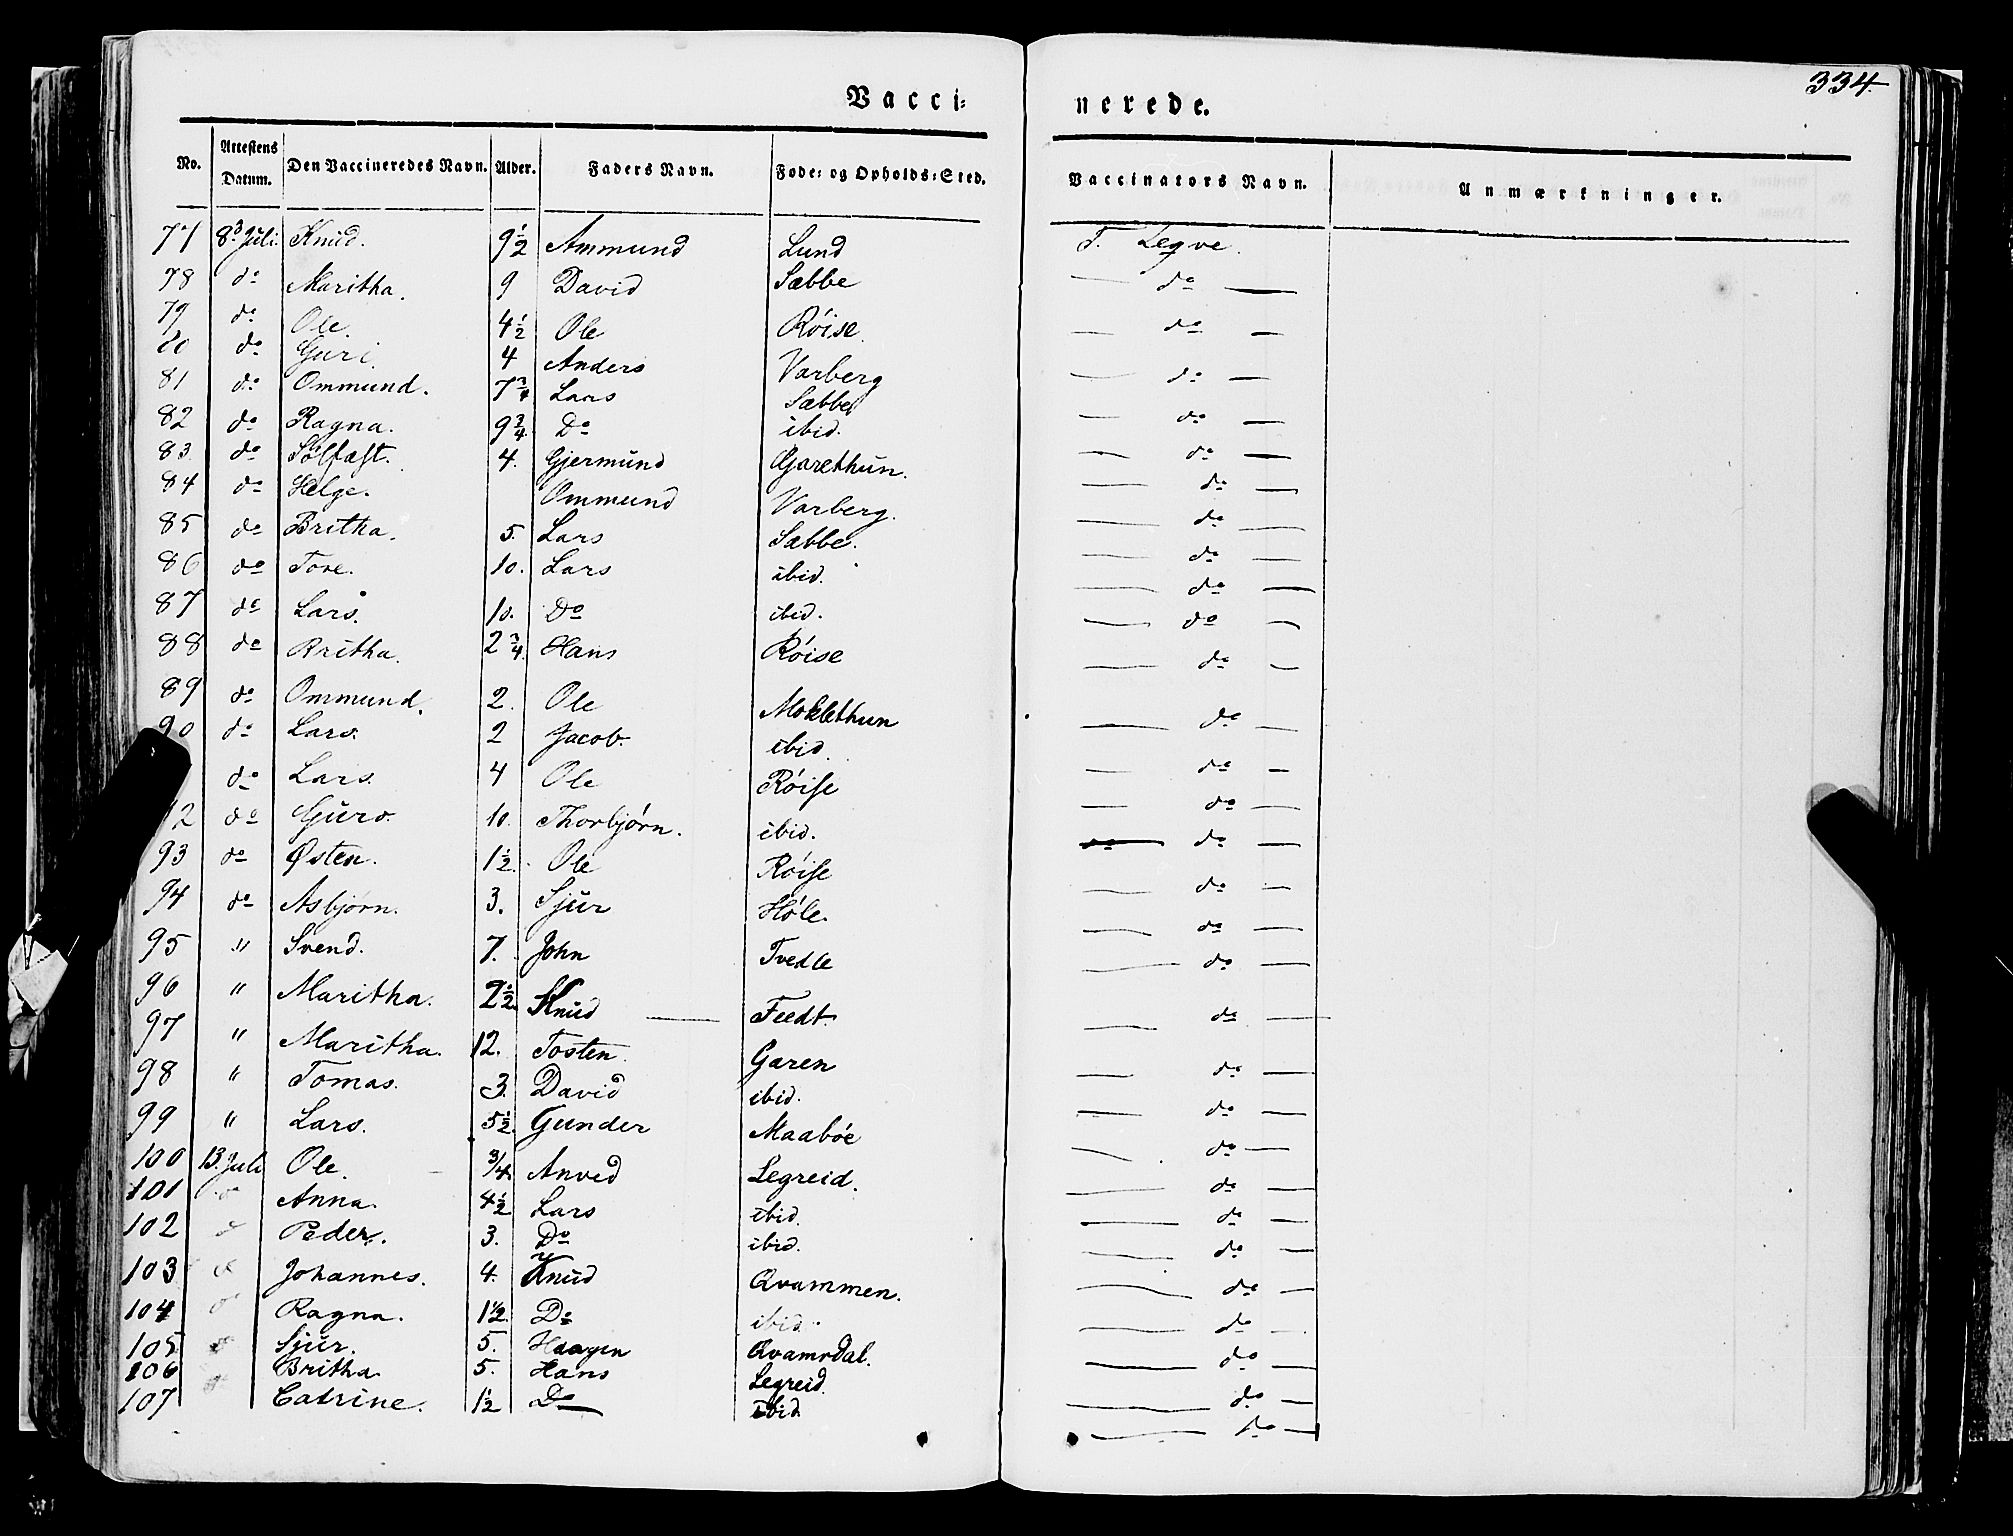 334.
Vacci= nerede.
No. Attestens Datum. Den Vaccineredes Navn. Alder. Faders Navn. Føde= og Opholds=Sted. Vaccinators Navn. Anmærkninger.
77 8d Juli. Knud. 9 1/2 Ammund Lund T. Legve.
78 do Maritha. 9 David Sæbbe — do —
79 do Ole. 4 1/2 Ole Røise. — do —
80 do Guri. 4 Anders Varberg — do —
81 do Ommund. 7 3/4 Lars Sæbbe — do —
82 do Ragna. 9 3/4 Do ibid. — do —
83 do Sølfæst. 4. Gjermund Garethun. — do —
84 do Helge. Ommund Varberg. — do —
85 do Britha. 5. Lars Sæbbe. — do —
86 do Tore. 10. Lars ibid. — do —
87 do Lars. 10. Do ibid. — do —
88 do Britha. 2 3/4. Hans Røise — do —
89 do Ommund. 2. Ole Moklethun — do —
90 do Lars. 2 Jacob. ibid. — do —
do Lars. 4 Ole Røise — do —
2 do Guro. 10. Thorbjørn. ibid. — do —
93 do Østen. 1 1/2. Ole Røise — do —
94 do Asbjørn. 3. Sjur Høle. — do —
95 " Svend. 7. John Tvedte — do —
96 " Maritha. 2 1/2 Knud — Feedt. — do —
97 " Maritha. 12. Tosten. Garen — do —
98 " Tomas. 3. David ibid. — do —
99 " Lars. 5 1/2. Gunder Maabøe — do —
100 13. Juli Ole. 3/4. Anved Legreid. — do —
101 do Anna. 4 1/2 Lars ibid. — do —
102 d Peder. 3. Do ibid. — do —
103 d Johannes. 4. Knud Qvammen. — do —
104 do Ragna. 1 1/2. Do ibid. — do —
105 Sjur. 5. Haagen Qvamsdal. — do —
106 Britha. 5. Hans Legreid. — do —
107 Catrine. 1 1/2 Do ibid. — do —